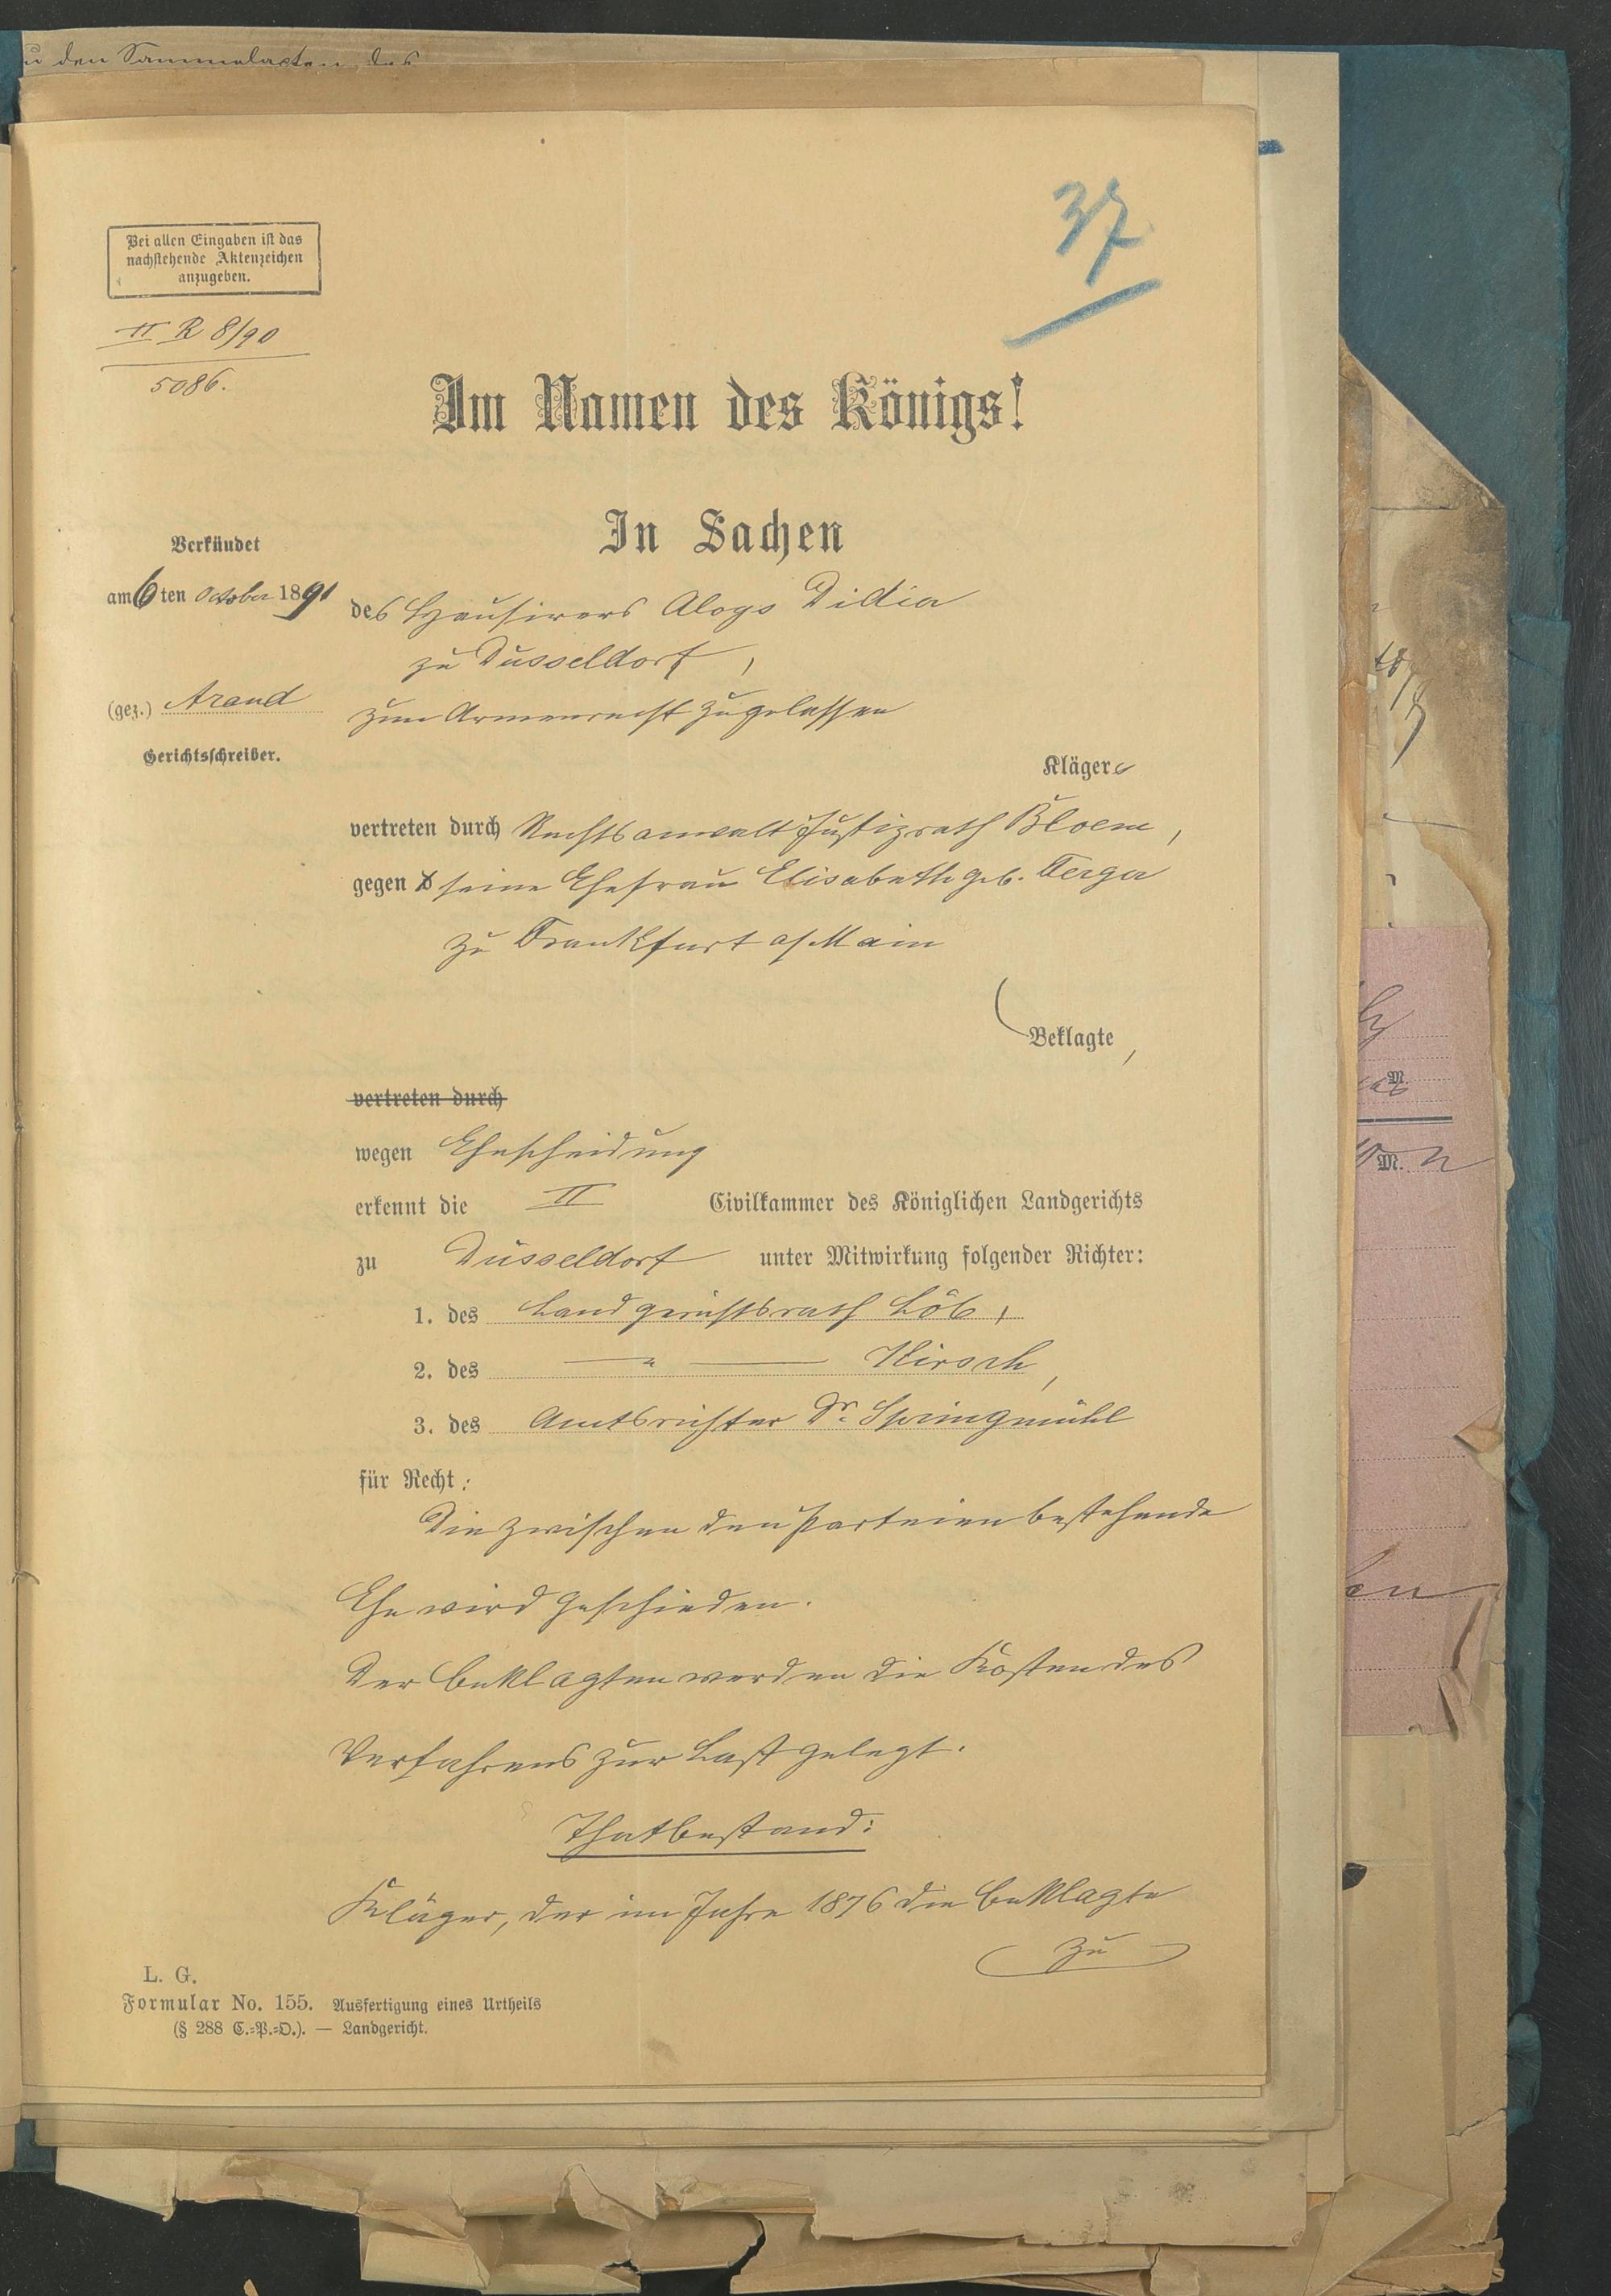 u den Sammelacten des
37
Bei allen Eingaben ist das
nachstehende Aktenzeichen
anzugeben.
II R 8/90
5086.
Im Namen des Königs!
In Sachen
Verkündet
am 6 ten October 1891
des Hausirers Aloys Didia
zu Düsseldorf,
(gez.) Arand
zum Armenrecht zugelassen
Gerichtsschreiber.
Klägers
vertreten durch Rechtsanwalt Justizrath Bloem,
gegen seine Ehefrau Elisabeth geb. Ferger
zu Frankfurt a/Main
Beklagte,
vertreten durch
wegen Ehescheidung
erkennt die II Civilkammer des Königlichen Landgerichts
zu Düsseldorf unter Mitwirkung folgender Richter:
1. des Landgerichtsrath Löb,
2. des — " — Hirsch,
3. des Amtsrichter Dr. Springmühl
für Recht:
Die zwischen den Parteien bestehende
Ehe wird geschieden.
Der Beklagten werden die Kosten des
Verfahrens zur Last gelegt.
Thatbestand:
Kläger, der im Jahre 1876 die Beklagte
zu
L. G.
Formular No. 155. Ausfertigung eines Urtheils
(§ 288 C.=P.=O.). — Landgericht.
M.
M.